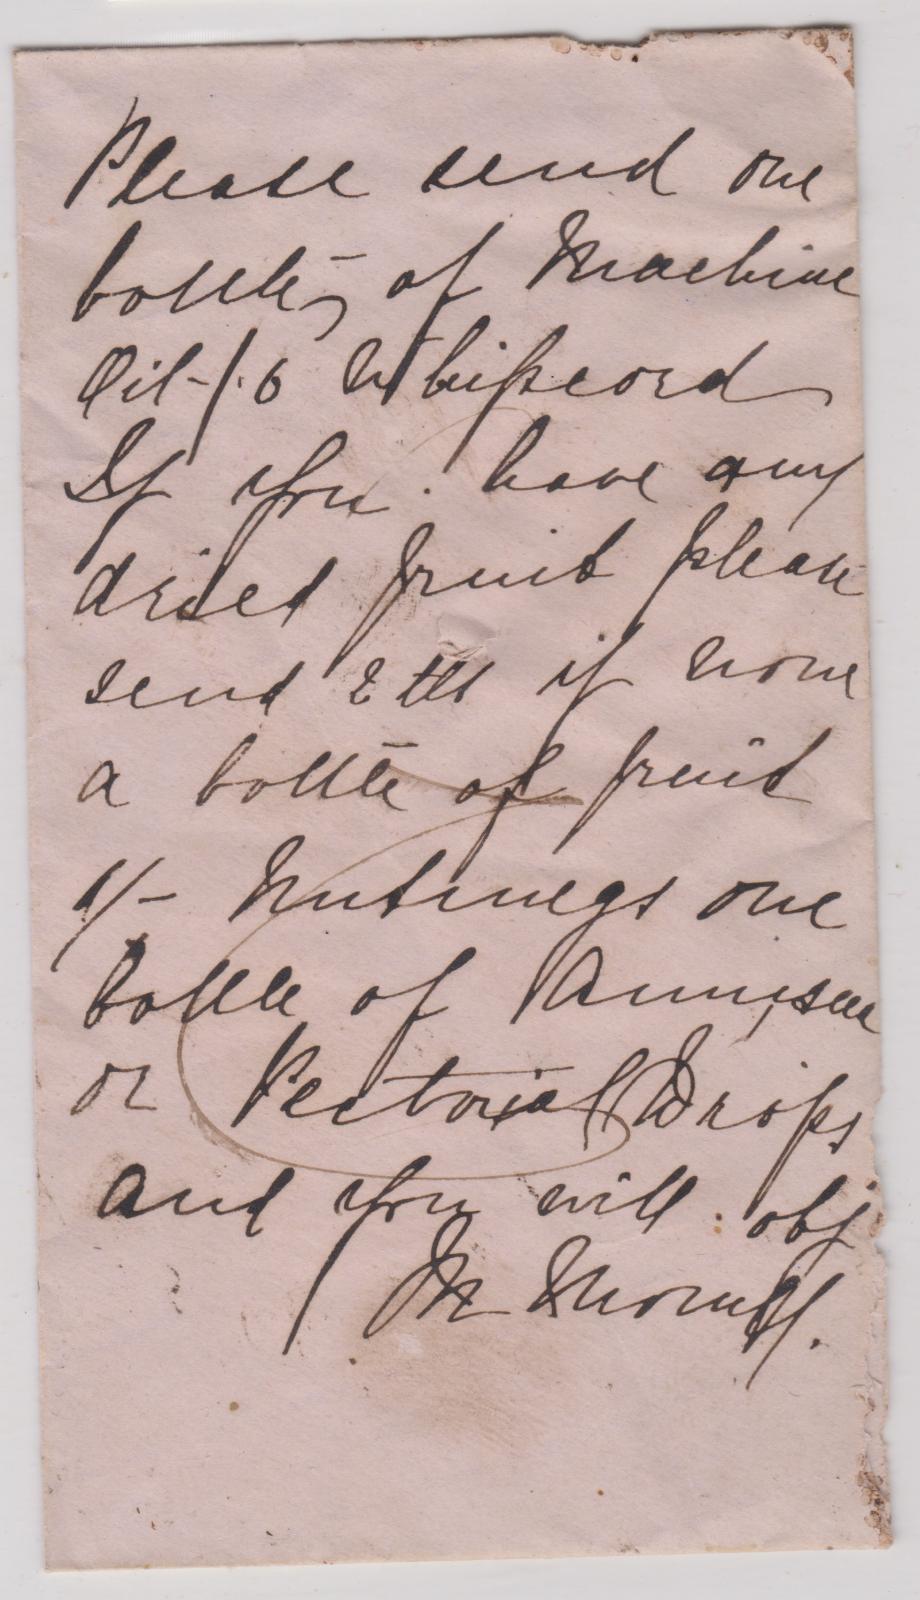 Please send one
bottle of Machine
Oil -/6 Whipcord
If you have any
dried fruit please
send 2 lbs if none
a bottle of fruit
1/- Nutmegs one
bottle of Anniseee
or Pectorial Drops
and you will obj
M